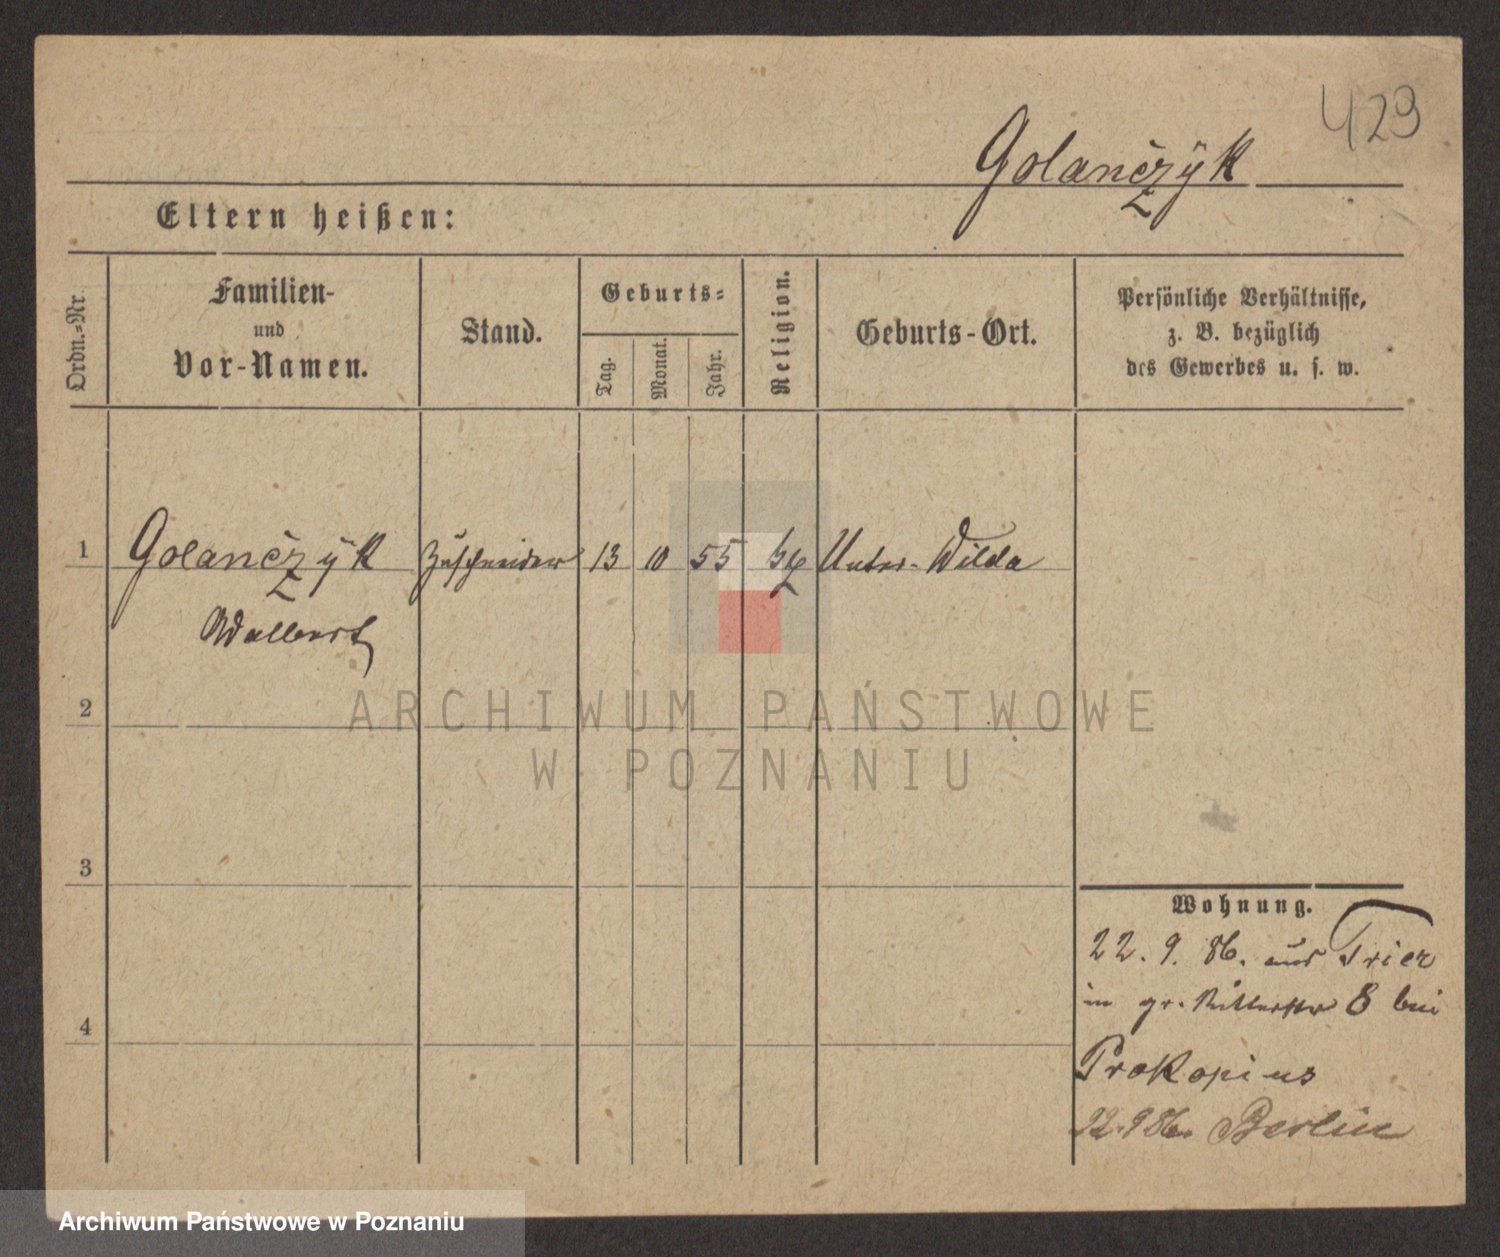 429
Golančzÿk
Eltern heißen:
Ordn.=Nr.
Familien-
und
Vor-Namen.
Stand.
Geburts=
Tag.
Monat.
Jahr.
Religion.
Geburts-Ort.
Persönliche Verhältnisse,
z. B. bezüglich
des Gewerbes u. s. w.
1 Golančzÿk Zuschneider 13 10 55 Unter-Wilda
Adalbert
2
3
4
Wohnung.
22. 9. 86. aus Trier
in gr. Ritterstr 8 bei
Prokopius
22.9 86. Berlin
ARCHIWUM PAŃSTWOWE
W POZNANIU
Archiwum Państwowe w Poznaniu